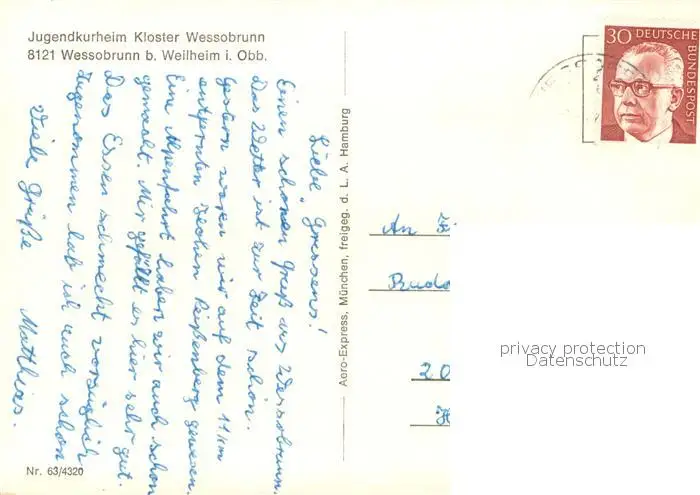 Jugendkurheim Kloster Wessobrunn
8121 Wessobrunn b. Weilheim i. Obb.
Liebe Gressens!
Einen schönen Gruß aus Wessobrunn.
Das Wetter ist zur Zeit schön.
Gestern waren wir auf dem 11 km
entfernten Hohen Peißenberg gewesen.
Eine Alpenfahrt haben wir auch schon
gemacht. Mir gefällt es hier sehr gut.
Das Essen schmeckt vorzüglich
Zugenommen hab ich auch schon
Viele Grüße Matthias.
Nr. 63/4320
Aero-Express, München, freigeg. d. L. A. Hamburg
30 DEUTSCHE
BUNDESPOST
An
20
privacy protection
Datenschutz